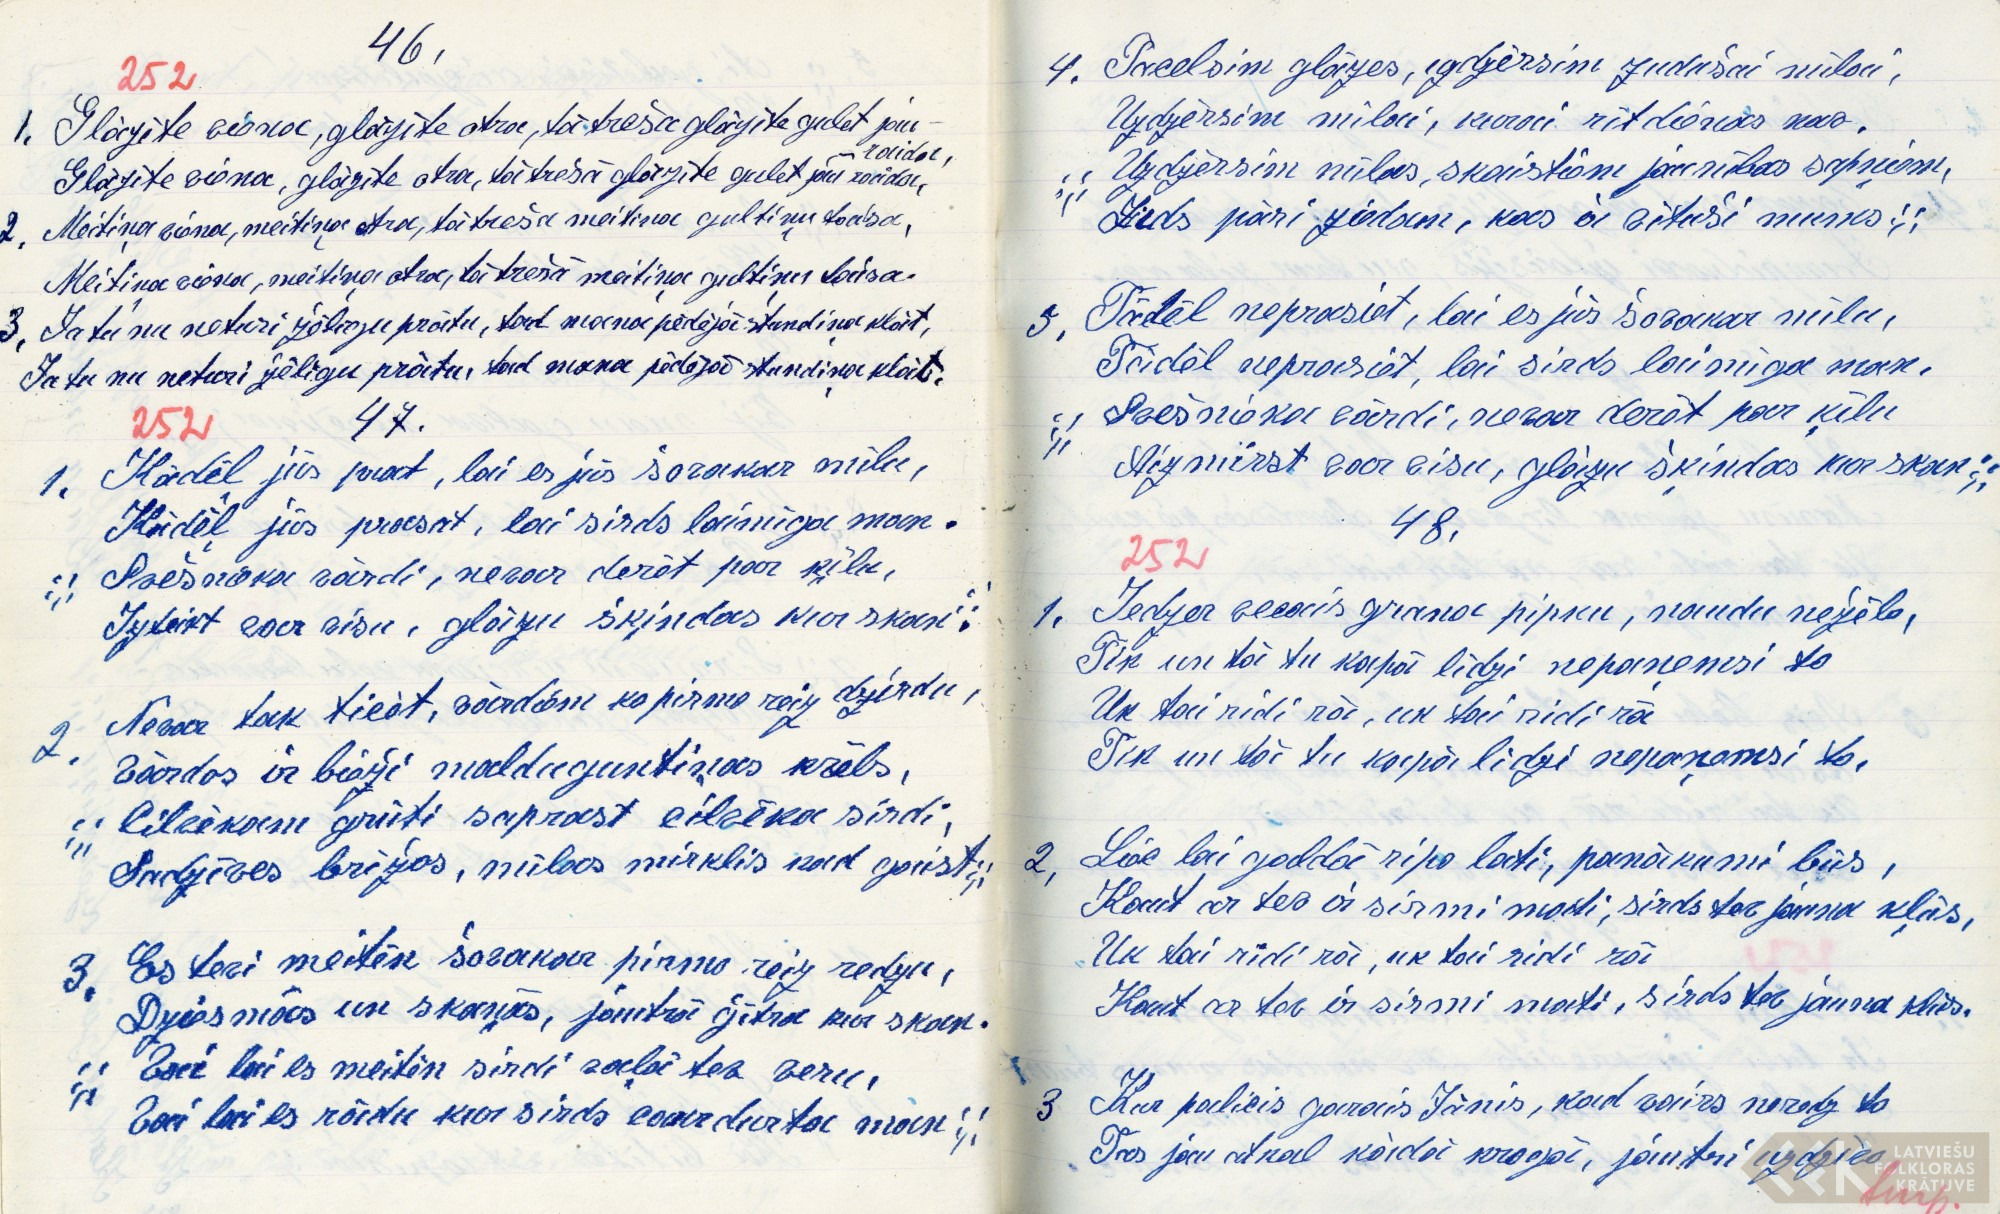 46.
252
1. Glāzīte viena, glāzīte otra, tā trešā glāzīte gulet jau
raida,
Glāzīte viena, glāzīte otra, tā trešā glāzīte gulet jau raida,
2. Meitiņa viena, meitiņa otra, tā treša meitiņa gultiņu taisa,
Meitiņa viena, meitiņa otra, tā trešā meitiņa gultiņu taisa.
3. Ja tu nu neturi žēlīgu prātu, tad mana pēdējā stundiņa klāt,
Ja tu nu neturi žēlīgu prātu, tad mana pēdējā stundiņa klāt.
252
47.
1. Kādēļ jūs prat, lai es jūs šovakar mīlu,
Kādēļ jūs prasat, lai sirds laimīga man.
;; Svešinieka vārdi, nevar derēt par ķīlu,
Izteikt var visu, glāzu šķindas kur skan ;;
2. Nevar tak ticēt, vārdiem ko pirmo reiz dzirdu,
Vārdos ir bieži malduguntiņas krēls,
;; Cilvēkam grūti saprast cilvēka sirdi,
Sadzīves brīžos, mīlas mirklis kad gaist ;;
3. Es tevi meitēn šovakar pirmo reiz redzu,
Dziesmās un skaņās, jautrā ģitra kur skan.
;; Vai lai es meitēn sirdi vaļā tev veru,
Vai lai es rādu kur sirds caurdurta man ;;
4. Pacelsim glāzes, uzdzērsim zudušai mīlai,
Uzdzērsim mīlai, kurai rītdienas nav.
;; Uzdzērsim mīlas, skaistiem jaunības sapņiem,
Zuds pāri ziedam, kas ir vītuši mums ;;
5. Tādēl neprasiet, lai es jūs šovakar mīlu,
Tādēl neprasiet, lai sirds laimīga man.
;; Svešnieka vārdi, nevar derēt par ķīlu
Aizmirst var visu, glāzu šķindas kur skan ;;
48.
252
1. Iedzer vecais grana pipku, naudu nežēlo,
Tik un tā tu kapā līdzi nepaņemsi to
Un tai ridi rā, un tai ridi rā
Tik un tā tu kapā līdzi nepaņemsi to.
2. Liec lai galdā ripo lati, panākumi būs,
Kaut ar tev ir sirmi mati, sirds tev jauna kļūs,
Un tai ridi rā, un tai ridi rā
Kaut ar tev ir sirmi mati, sirds tev jauna kļūs.
3 Kur palicis garais Jānis, kad vairs neredz to
Tas jau atkal kādā krogā, jautri uzdzīvo
turp.
LATVIEŠU
FOLKLORAS
KRĀTUVE